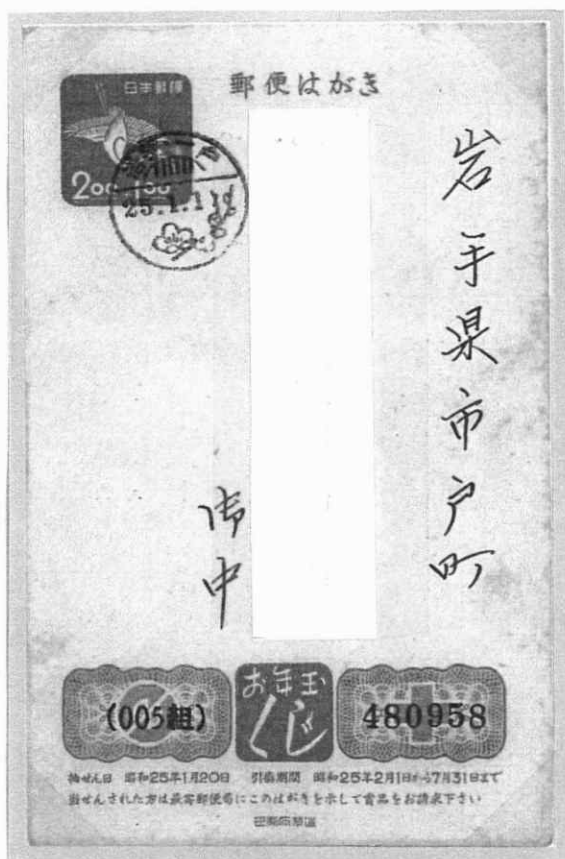 郵便はがき
日本郵便
2.00+1.00
戸
25.1.1
岩手県市戸町
御中
お年玉
くじ
(005組)
480958
抽せん日 昭和25年1月20日 引換期間 昭和25年2月1日から7月31日まで
当せんされた方は最寄郵便局にこのはがきを示して賞品をお請求下さい